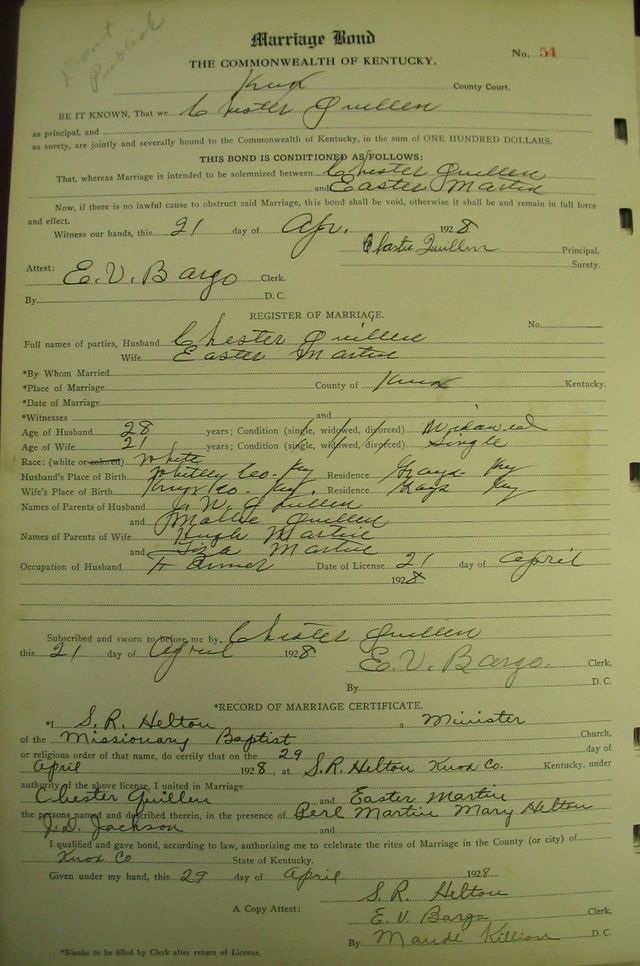 Don't
Publish
Marriage Bond
No. 54
THE COMMONWEALTH OF KENTUCKY.
Knox County Court.
BE IT KNOWN, That we Chester Quillen
as principal, and
as surety, are jointly and severally bound to the Commonwealth of Kentucky, in the sum of ONE HUNDRED DOLLARS.
THIS BOND IS CONDITIONED AS FOLLOWS:
That, whereas Marriage is intended to be solemnized between Chester Quillen
and Easter Martin
Now, if there is no lawful cause to obstruct said Marriage, this bond shall be void, otherwise it shall be and remain in full force
and effect.
Witness our hands, this 21 day of Apr. 1928
Chester Quillen Principal.
Surety.
Attest: E. V. Bargo Clerk.
By D. C.
REGISTER OF MARRIAGE.
No.
Full names of parties, Husband Chester Quillen
Wife Easter Martin
*By Whom Married
*Place of Marriage County of Knox Kentucky.
*Date of Marriage
*Witnesses and
Age of Husband 28 years; Condition (single, widowed, divorced) Widowed
Age of Wife 21 years; Condition (single, widowed, divorced) Single
Race: (white or colored) White
Husband's Place of Birth Whitley Co. Ky Residence Grays Ky
Wife's Place of Birth Knox Co. Ky. Residence Grays Ky
Names of Parents of Husband J. W. Quillen
and Mollie Quillen
Names of Parents of Wife Hugh Martin
and Liza Martin
Occupation of Husband Farmer Date of License 21 day of April
1928
Subscribed and sworn to before me by Chester Quillen
this 21 day of April 1928 E. V. Bargo. Clerk,
By D. C.
*RECORD OF MARRIAGE CERTIFICATE.
*I S. R. Helton a Minister
of the Missionary Baptist Church,
or religious order of that name, do certify that on the 29 day of
April 1928, at S. R. Helton Knox Co. Kentucky, under
authority of the above license, I united in Marriage
Chester Quillen and Easter Martin
the persons named and described therein, in the presence of Perl Martin Mary Helton
J. D. Jackson and
I qualified and gave bond, according to law, authorizing me to celebrate the rites of Marriage in the County (or city) of
Knox Co State of Kentucky.
Given under my hand, this 29 day of April 1928
S. R. Helton
A Copy Attest: E. V. Bargo Clerk,
By Maude Killion D. C.
*Blanks to be filled by Clerk after return of License.